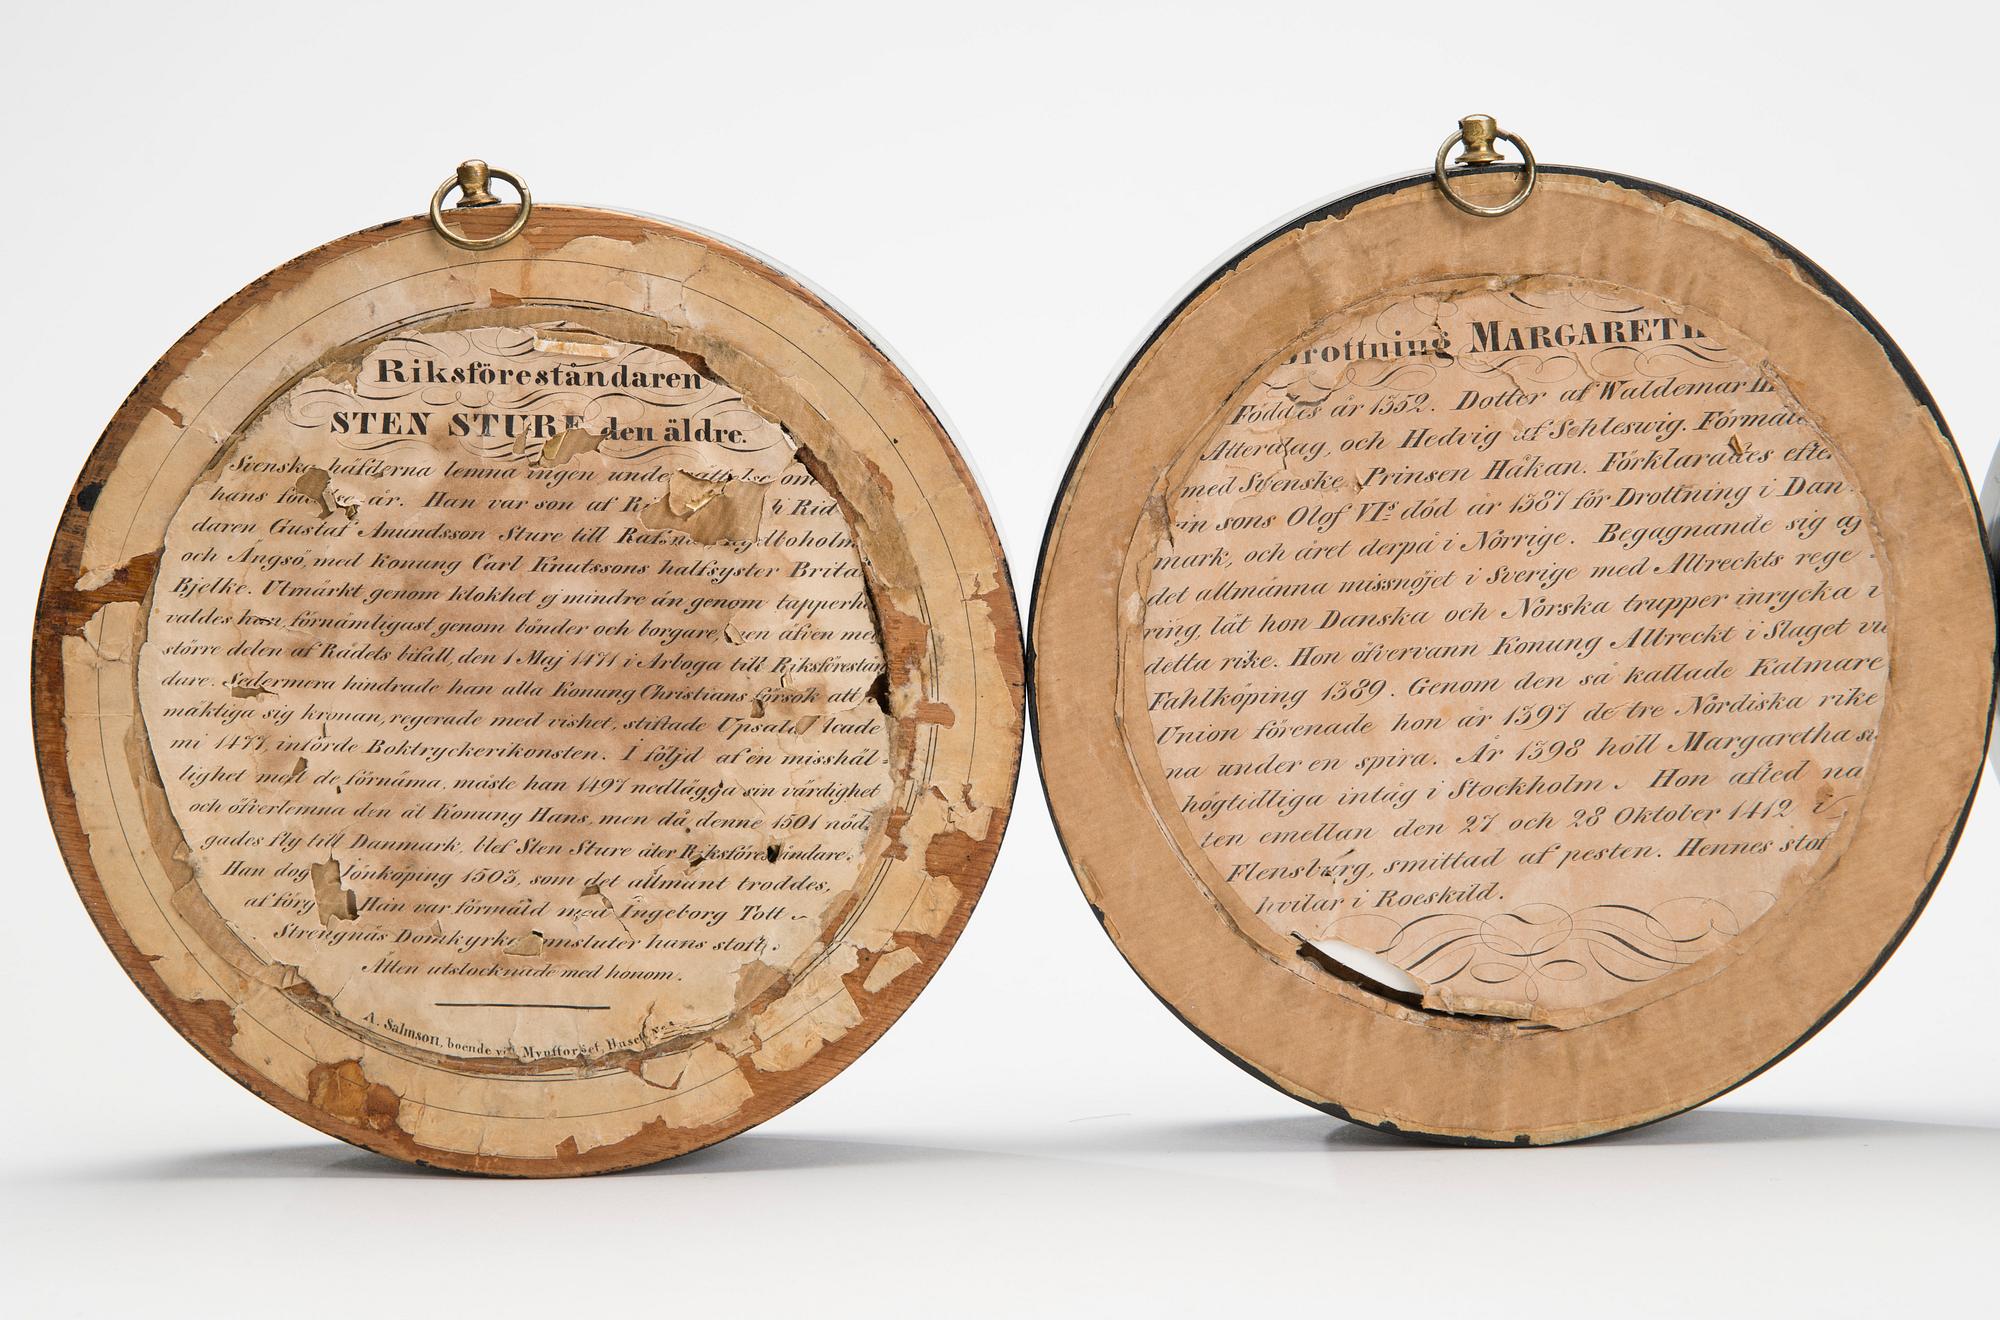 Riksföreståndaren
STEN STURE den äldre.
Svenska häfderna lemna ingen om
hans år. Han var son af Rid
daren Gustaf Anundsson Sture till
och Ängsö, med Konung Carl Knutssons halfsyster Brita
Bjelke. Utmärkt genom klokhet ej mindre än genom
valdes han, förnämligast genom bönder och borgare, äfven
större delen af Rådets bifall, den 1 Maj 1471 i Arboga till
dare. Sedermera hindrade han alla Konung Christians försök att
mäktiga sig kronan, regerade med vishet, stiftade
mi 1477, införde Boktryckerikonsten. I följd af en misshäl=
lighet med de förnäma, måste han 1497 nedlägga sin värdighet
och öfverlemna den åt Konung Hans, men då denne 1501 nöd=
gades fly till Danmark, blef Sten Sture åter Riksföreståndare.
Han dog Jönköping 1503, som det allmänt troddes,
af Han var förmäld med Ingeborg Tott
Strengnäs Domkyrka omsluter hans stoft.
Ätten utslocknade med honom.
A. Salmson, boende vid Mynttorget, Huset No
Drottning MARGARETH
Föddes år 1352. Dotter af Waldemar III
Atterdag, och Hedvig af Schleswig.
med Svenske Prinsen Håkan. Förklarades
sin sons Olof VIs död år 1387 för Drottning i Dan
mark, och året derpå i Norrige. Begagnande sig af
det allmänna missnöjet i Sverige med Albreckts rege=
ring, lät hon Danska och Norska trupper inrycka i
detta rike. Hon öfvervann Konung Albreckt i Slaget
Fahlköping 1389. Genom den så kallade Kalmare
Union förenade hon år 1397 de tre Nordiska rike
na under en spira. År 1398 höll Margaretha
högtidliga intåg i Stockholm. Hon afled na
ten emellan den 27 och 28 Oktober 1412 i
Flensburg, smittad af pesten. Hennes stof
hvilar i Roeskild.